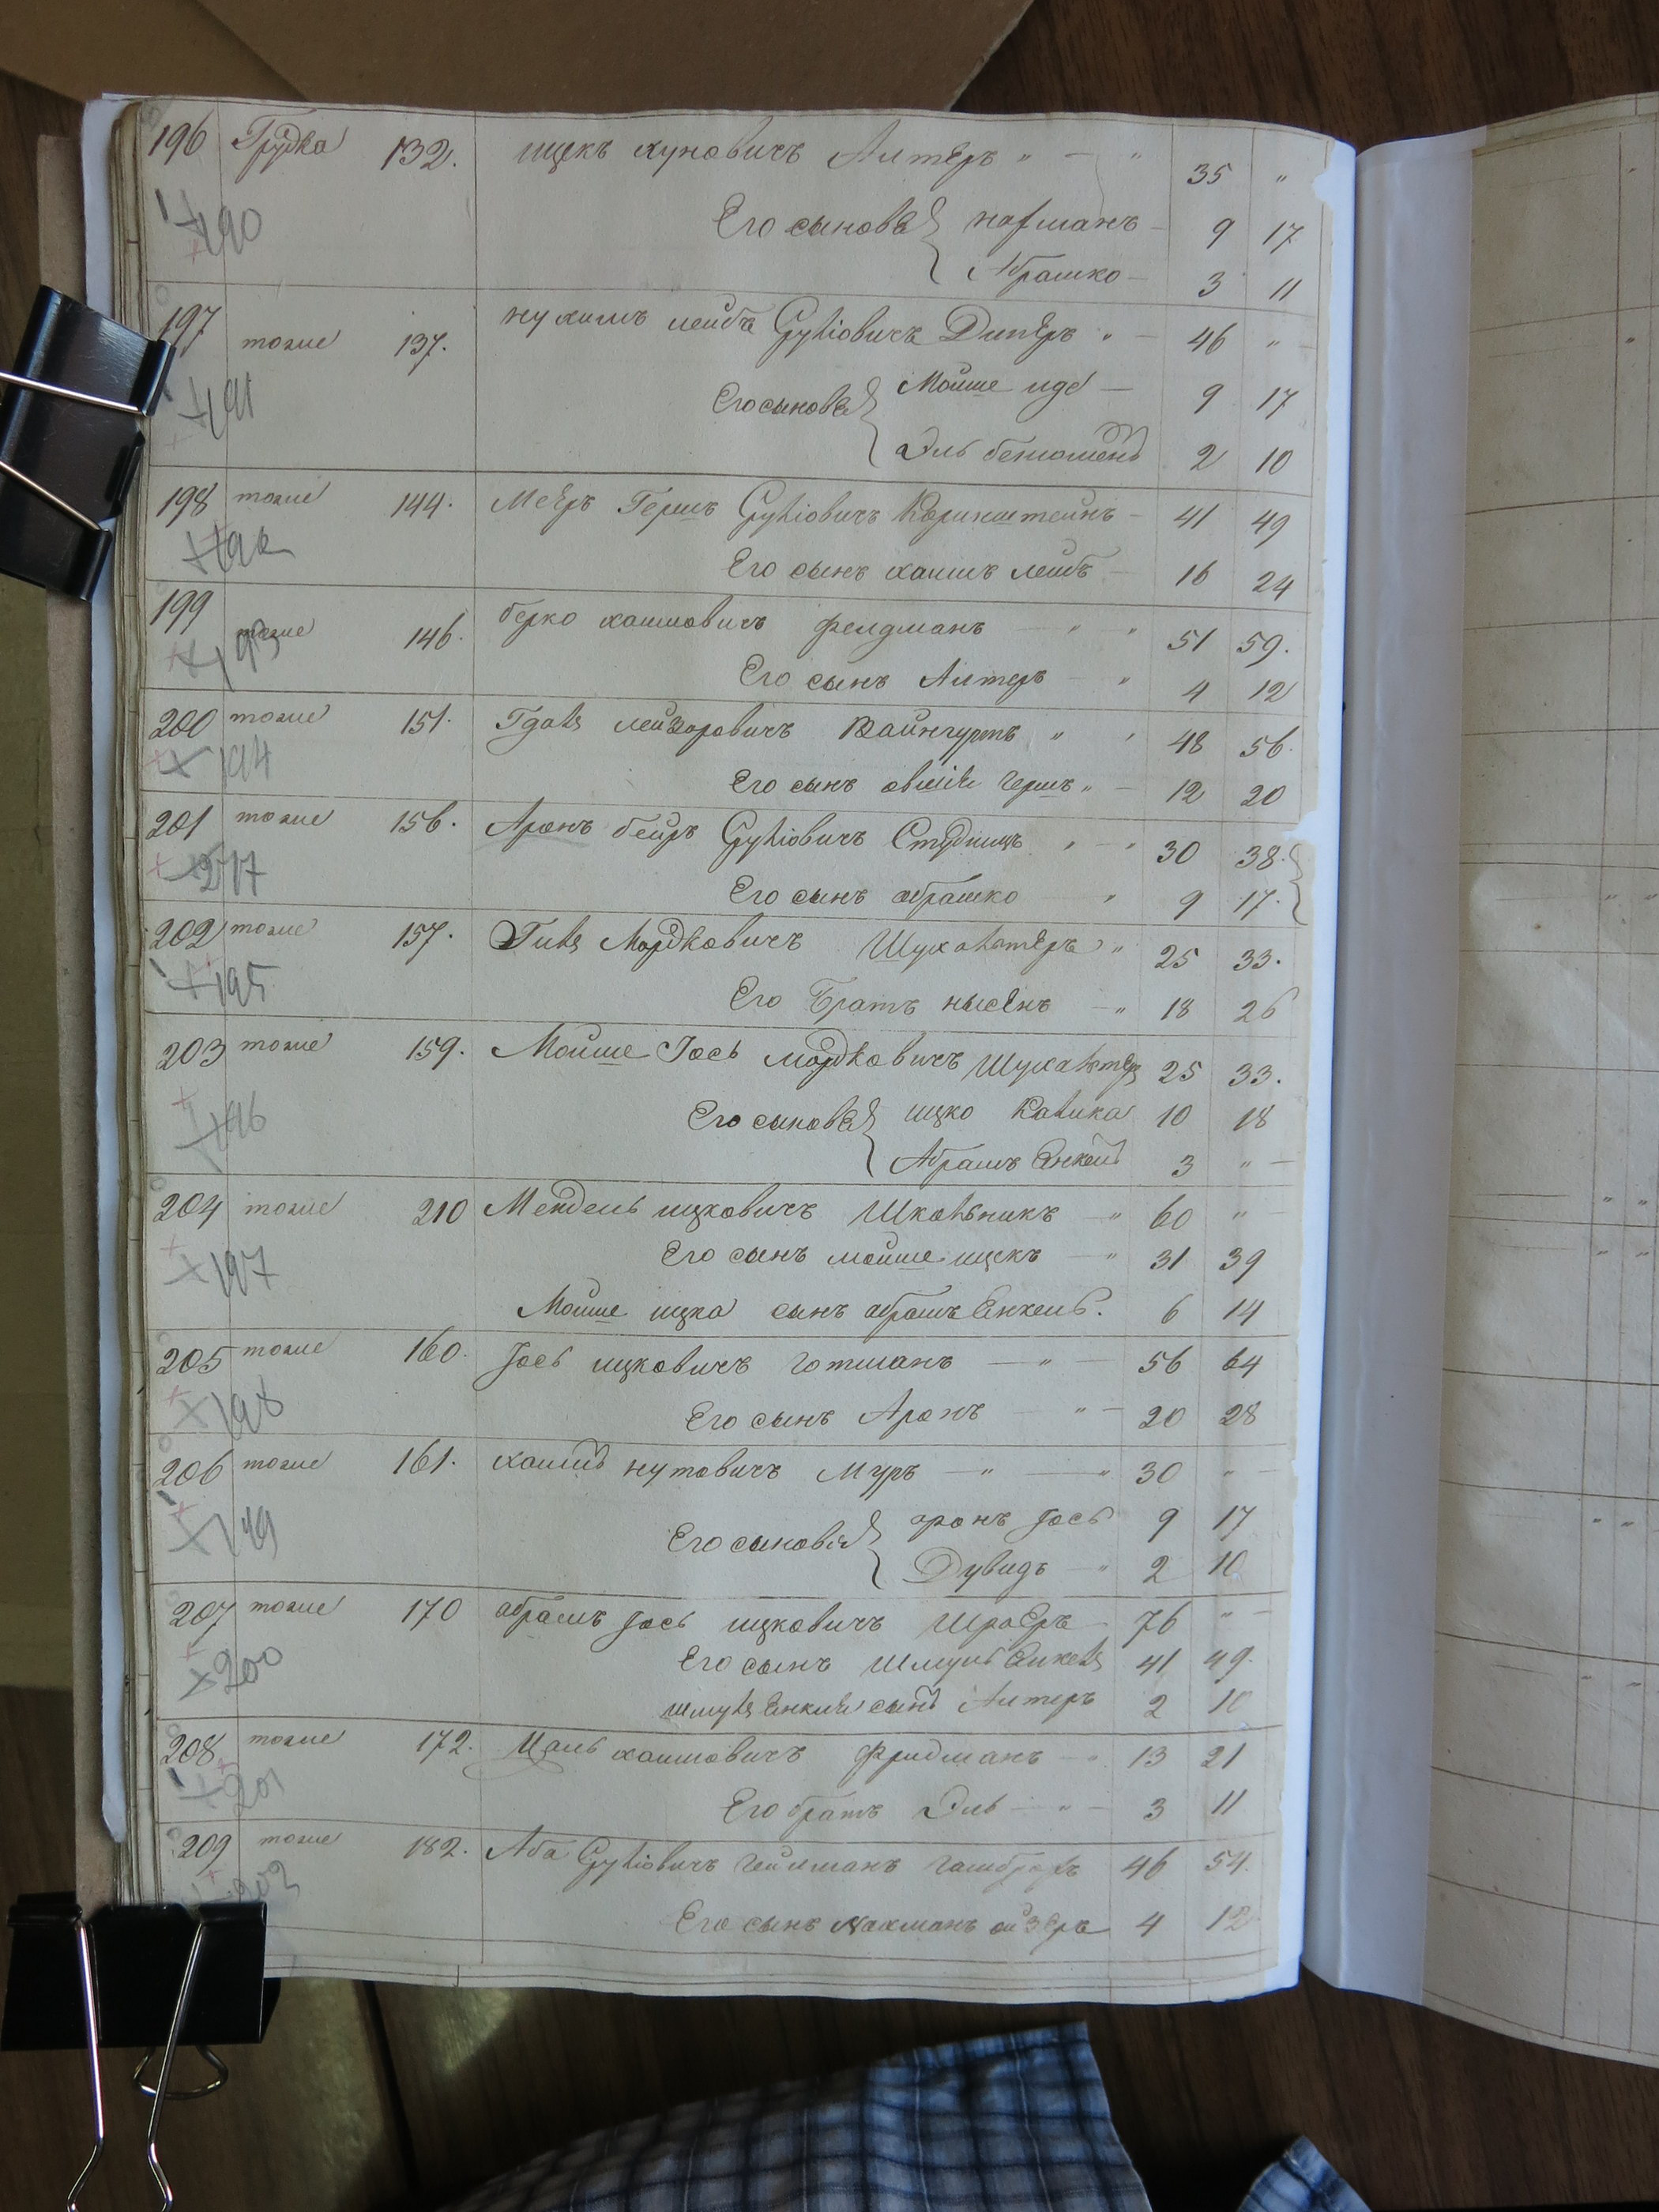 196 Грудка 132. ицекъ хуновичъ Алтеръ „ — „ 35 „
190
Его сыновья { нафманъ — 9 17
Абрашко — 3 11
197 тоже 137. нухимъ лейбъ Сруліовичъ Диперъ „ — 46 „ —
191 Его сыновья { Мойше идъ — 9 17
Эль беньоменъ 2 10
198 тоже 144. Меєръ Гершъ Сруліовичъ Кориштейнъ — 41 49
192 Его сынъ хаимъ лейбъ — 16 24
199 тоже 146. берко хаимовичъ фелдманъ „ „ 51 59.
193 Его сынъ Алтеръ — „ 4 12
200 тоже 151. Гдаля лейзоровичъ Вайнгуртъ „ „ 48 56.
194 Его сынъ овшій гершъ „ — 12 20
201 тоже 156. Аронъ беиръ Сруліовичъ Студницъ „ — „ 30 38.
217 Его сынъ абрашко „ 9 17.
202 тоже 157. Гиля Мордковичъ Шухальтеръ „ 25 33.
195 Его Братъ нысенъ — „ 18 26
203 тоже 159. Мойше Іось мордковичъ Шухальтеръ 25 33.
196 Его сыновья { ицко Калика 10 18
Абрамъ Енкель 3 „ —
204 тоже 210 Мендель ицковичъ Школьникъ — „ 60 „ —
197 Его сынъ мойше ицекъ — „ 31 39
Мойше ицка сынъ абрамъ Енкель. 6 14
205 тоже 160. Іось ицковичъ готманъ — „ 56 64
198 Его сынъ Аронъ — „ — 20 28
206 тоже 161. хаимъ нутовичъ Муръ — „ — „ 30 „ —
199 Его сыновья { аронъ Іось 9 17
Дувидъ — „ 2 10
207 тоже 170 абрамъ Іось ицковичъ Шраеръ — 76 „ —
200 Его сынъ Шмуль Енкель 41 49.
шмуля Енкеля сынъ Алтеръ 2 10
208 тоже 172. Цаль хаимовичъ Фридманъ — „ 13 21
201 Его братъ Эль — „ — 3 11
209 тоже 182. Аба Сруліовичъ гейлманъ 46 54.
202 Его сынъ Нахманъ ойзеръ 4 12